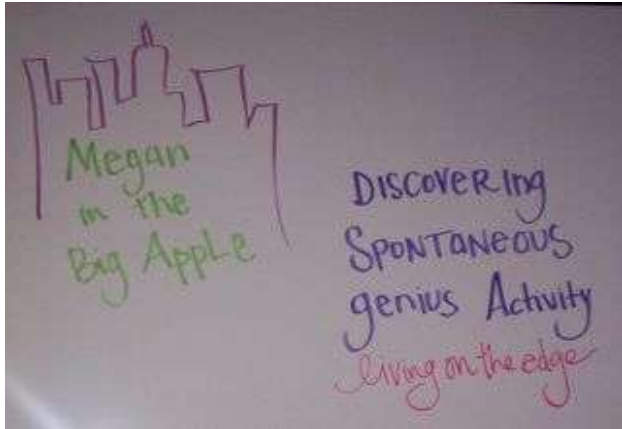 Megan
in the
Big Apple
Discovering
Spontaneous
genius Activity
living on the edge